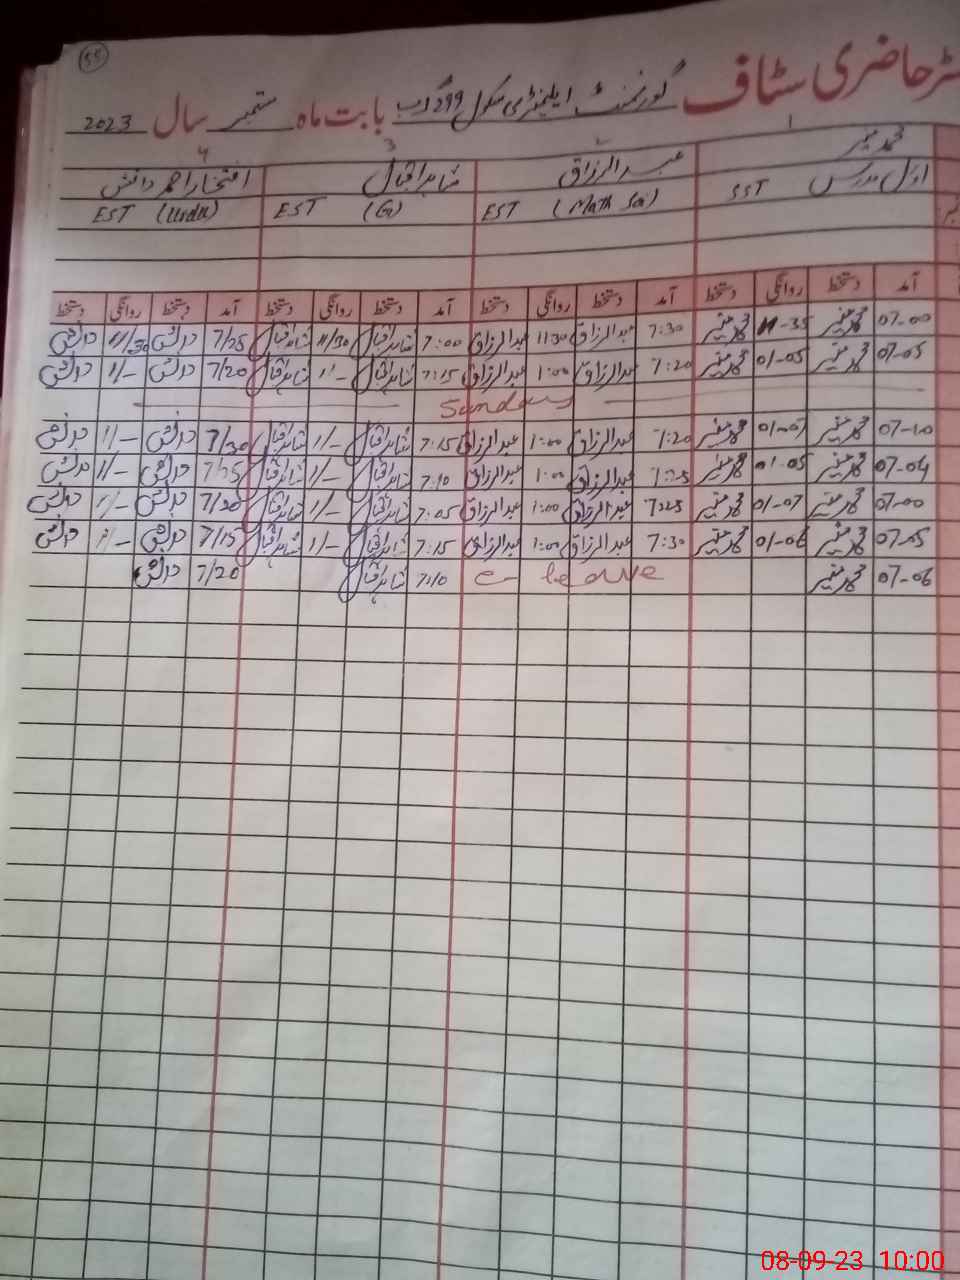 55
رجسٹر حاضری سٹاف گورنمنٹ ایلیمنٹری سکول 299 گ ب بابت ماہ ستمبر سال 2023
1 2 3 4
محمد منیر عبدالرزاق شاہد اقبال افتخار احمد دانش
اول مدرس SST EST (Math Sci) EST (G) EST (Urdu)
آمد دستخط روانگی دستخط آمد دستخط روانگی دستخط آمد دستخط روانگی دستخط آمد دستخط روانگی دستخط
07-00 محمد منیر 11-35 محمد منیر 7:30 عبدالرزاق 11:30 عبدالرزاق 7:00 شاہد اقبال 11/30 شاہد اقبال 7/25 دانش 11/30 دانش
07-05 محمد منیر 01-05 محمد منیر 7:20 عبدالرزاق 1:00 عبدالرزاق 7:15 شاہد اقبال 1/- شاہد اقبال 7/20 دانش 1/- دانش
Sunday
07-10 محمد منیر 01-07 محمد منیر 7:20 عبدالرزاق 1:00 عبدالرزاق 7:15 شاہد اقبال 1/- شاہد اقبال 7/30 دانش 1/- دانش
07-04 محمد منیر 01-05 محمد منیر 7:25 عبدالرزاق 1:00 عبدالرزاق 7:10 شاہد اقبال 1/- شاہد اقبال 7/25 دانش 1/- دانش
07-00 محمد منیر 01-07 محمد منیر 7:25 عبدالرزاق 1:00 عبدالرزاق 7:05 شاہد اقبال 1/- شاہد اقبال 7/20 دانش 1/- دانش
07-05 محمد منیر 01-06 محمد منیر 7:30 عبدالرزاق 1:00 عبدالرزاق 7:15 شاہد اقبال 1/- شاہد اقبال 7/15 دانش 1/- دانش
07-06 محمد منیر leave 7:10 شاہد اقبال 7/20 دانش
08-09-23 10:00